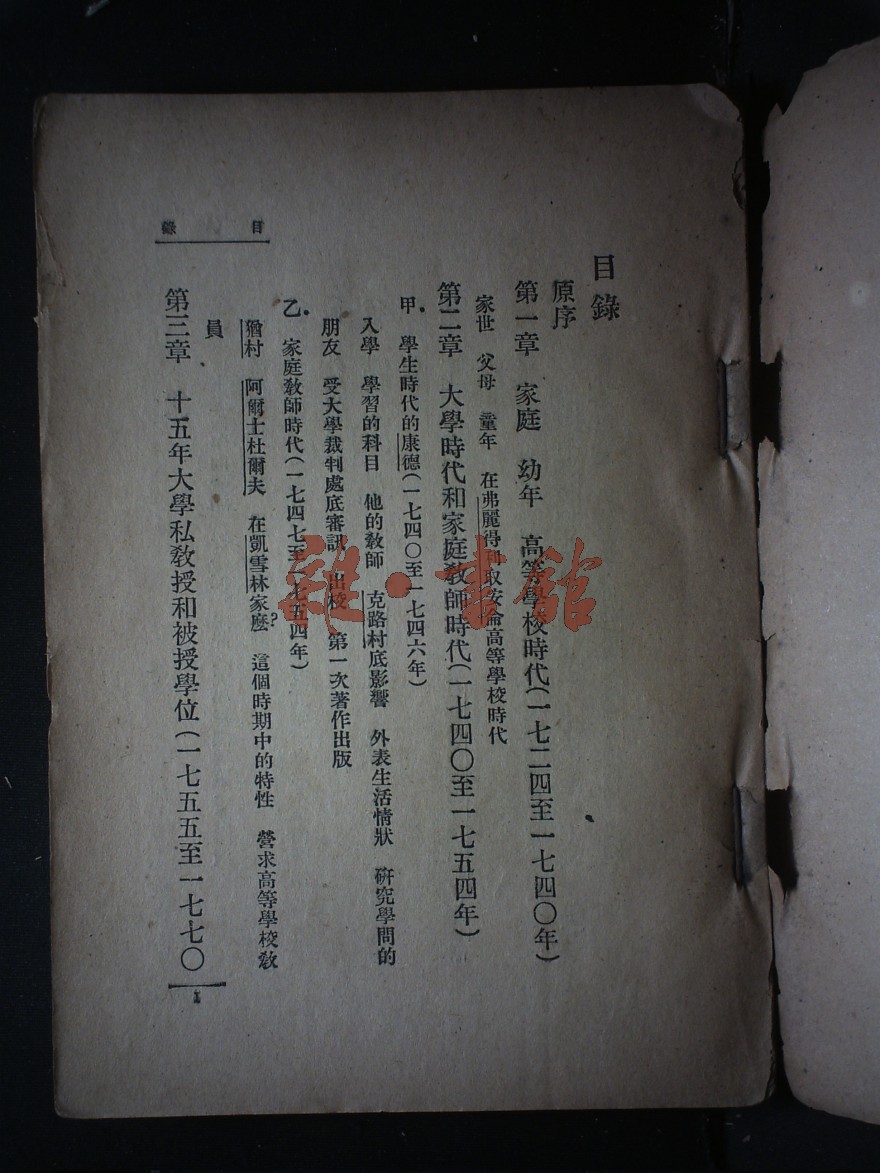 目錄
原序
第一章　家庭　幼年　高等學校時代(一七二四至一七四〇年)
家世　父母　童年　在弗麗得利取安倫高等學校時代
第二章　大學時代和家庭教師時代(一七四〇至一七五四年)
甲.　學生時代的康德(一七四〇至一七四六年)
入學　學習的科目　他的教師　克路村底影響　外表生活情狀　研究學問的
朋友　受大學裁判處底審訊　出校　第一次著作出版
乙.　家庭教師時代(一七四七至一七五四年)
猶村　阿爾士杜爾夫　在凱雪林家麽?　這個時期中的特性　營求高等學校教
員
第三章　十五年大學私教授和被授學位(一七五五至一七七〇
目錄
1
雜·書館